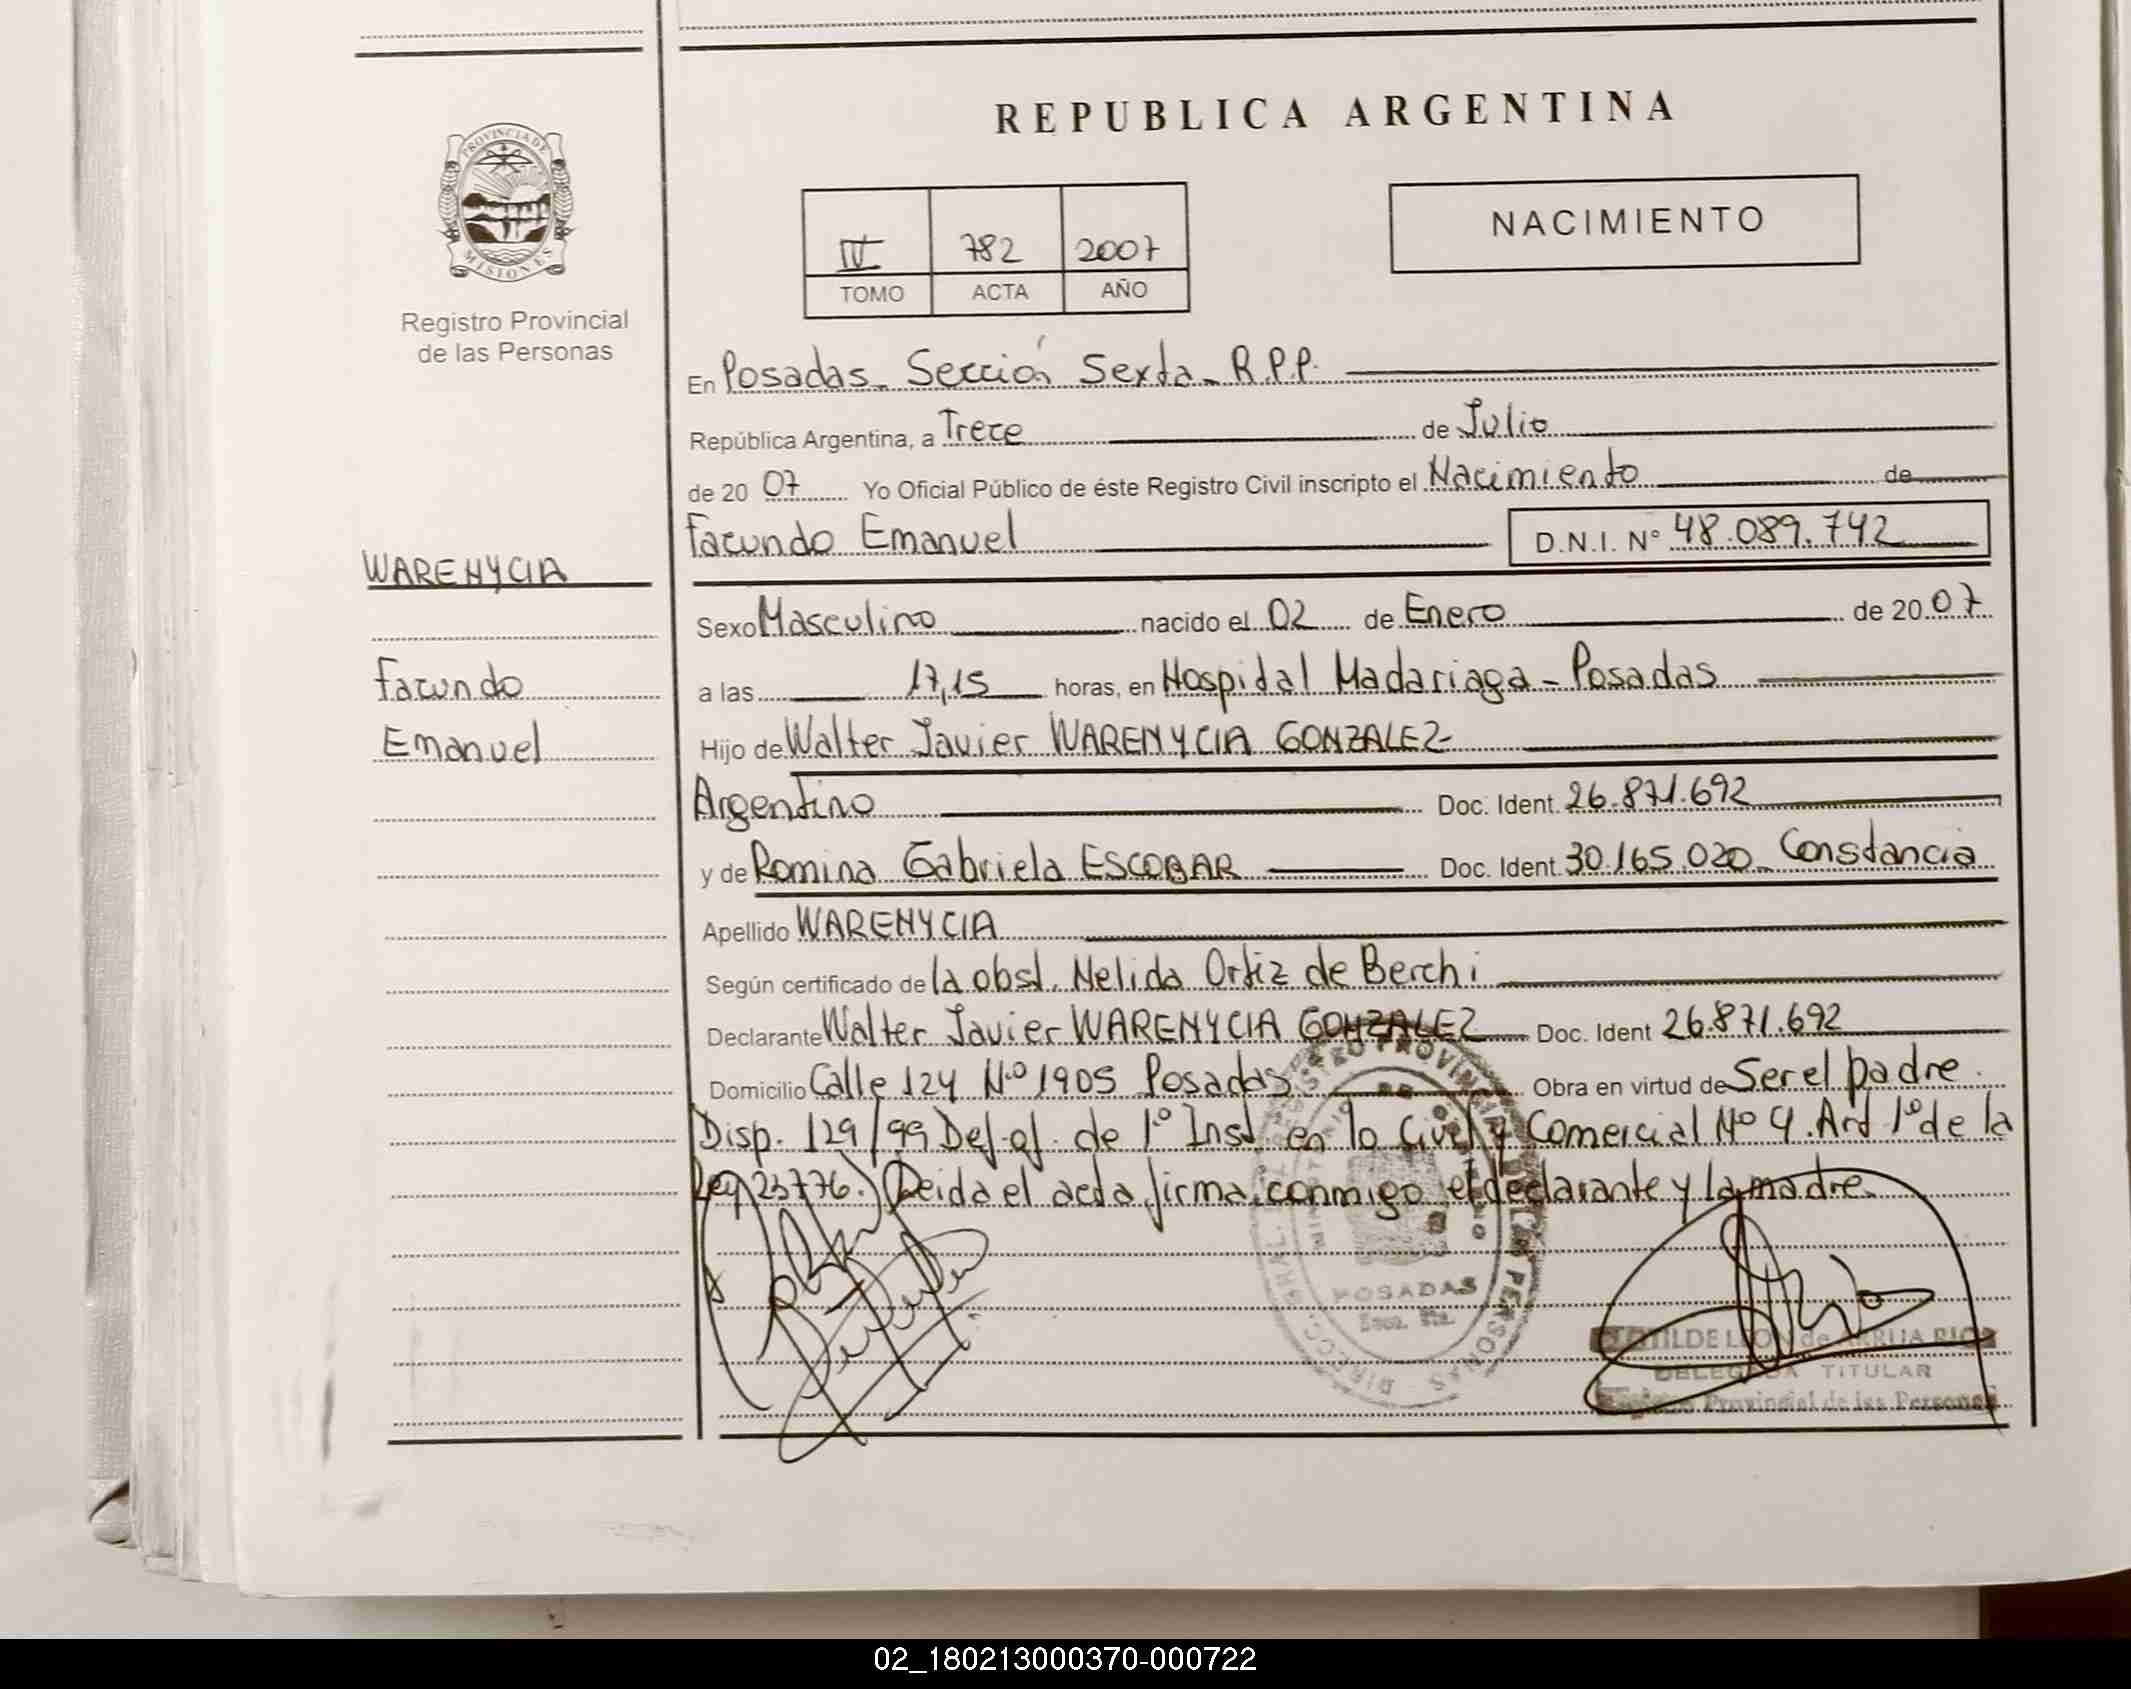 REPUBLICA ARGENTINA
PROVINCIA DE
MISIONES
Registro Provincial
de las Personas
IV 782 2007
TOMO ACTA AÑO
NACIMIENTO
En Posadas - Sección Sexta - R.P.P.
República Argentina, a Trece de Julio
de 20 07 Yo Oficial Público de éste Registro Civil inscripto el Nacimiento de
Facundo Emanuel D.N.I. Nº 48.089.742
WARENYCIA
Sexo Masculino nacido el 02 de Enero de 20 07
Facundo
a las 17,15 horas, en Hospital Madariaga - Posadas
Emanuel
Hijo de Walter Javier WARENYCIA GONZALEZ
Argentino Doc. Ident. 26.871.692
y de Romina Gabriela ESCOBAR Doc. Ident. 30.165.020 - Constancia
Apellido WARENYCIA
Según certificado de la obst. Nelida Ortiz de Berchi
Declarante Walter Javier WARENYCIA GONZALEZ Doc. Ident 26.871.692
Domicilio Calle 124 N.º 1905 Posadas Obra en virtud de Ser el padre.
Disp. 129/99 Def. of. de 1º Inst. en lo Civel y Comercial Nº 4. Art 1º de la
Ley 23776.) Leida el acta, firma conmigo el declarante y la madre.
POSADAS
DELEGADA TITULAR
Registro Provincial de las Personas
02_180213000370-000722